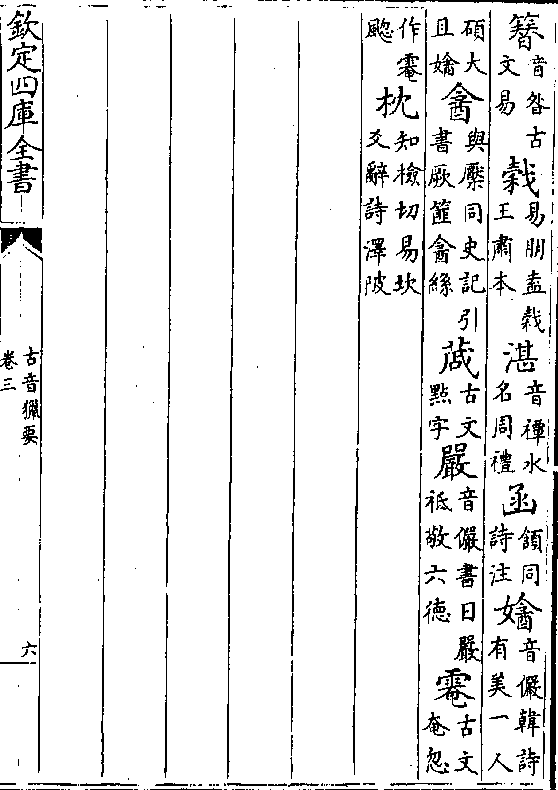 簪音昝古文易易朋盍王肅本湛音禫水名周禮函頷同詩注㜝音儼韓詩有美一人
碩大且㜝酓與檿同史記引書厥篚酓絲蒧古文點字嚴音儼書日嚴祗敬六德𩃗古文奄忽
作𩃗颮枕知檢切易坎爻辭詩澤陂
欽定四庫全書
古音獵要
卷三
六